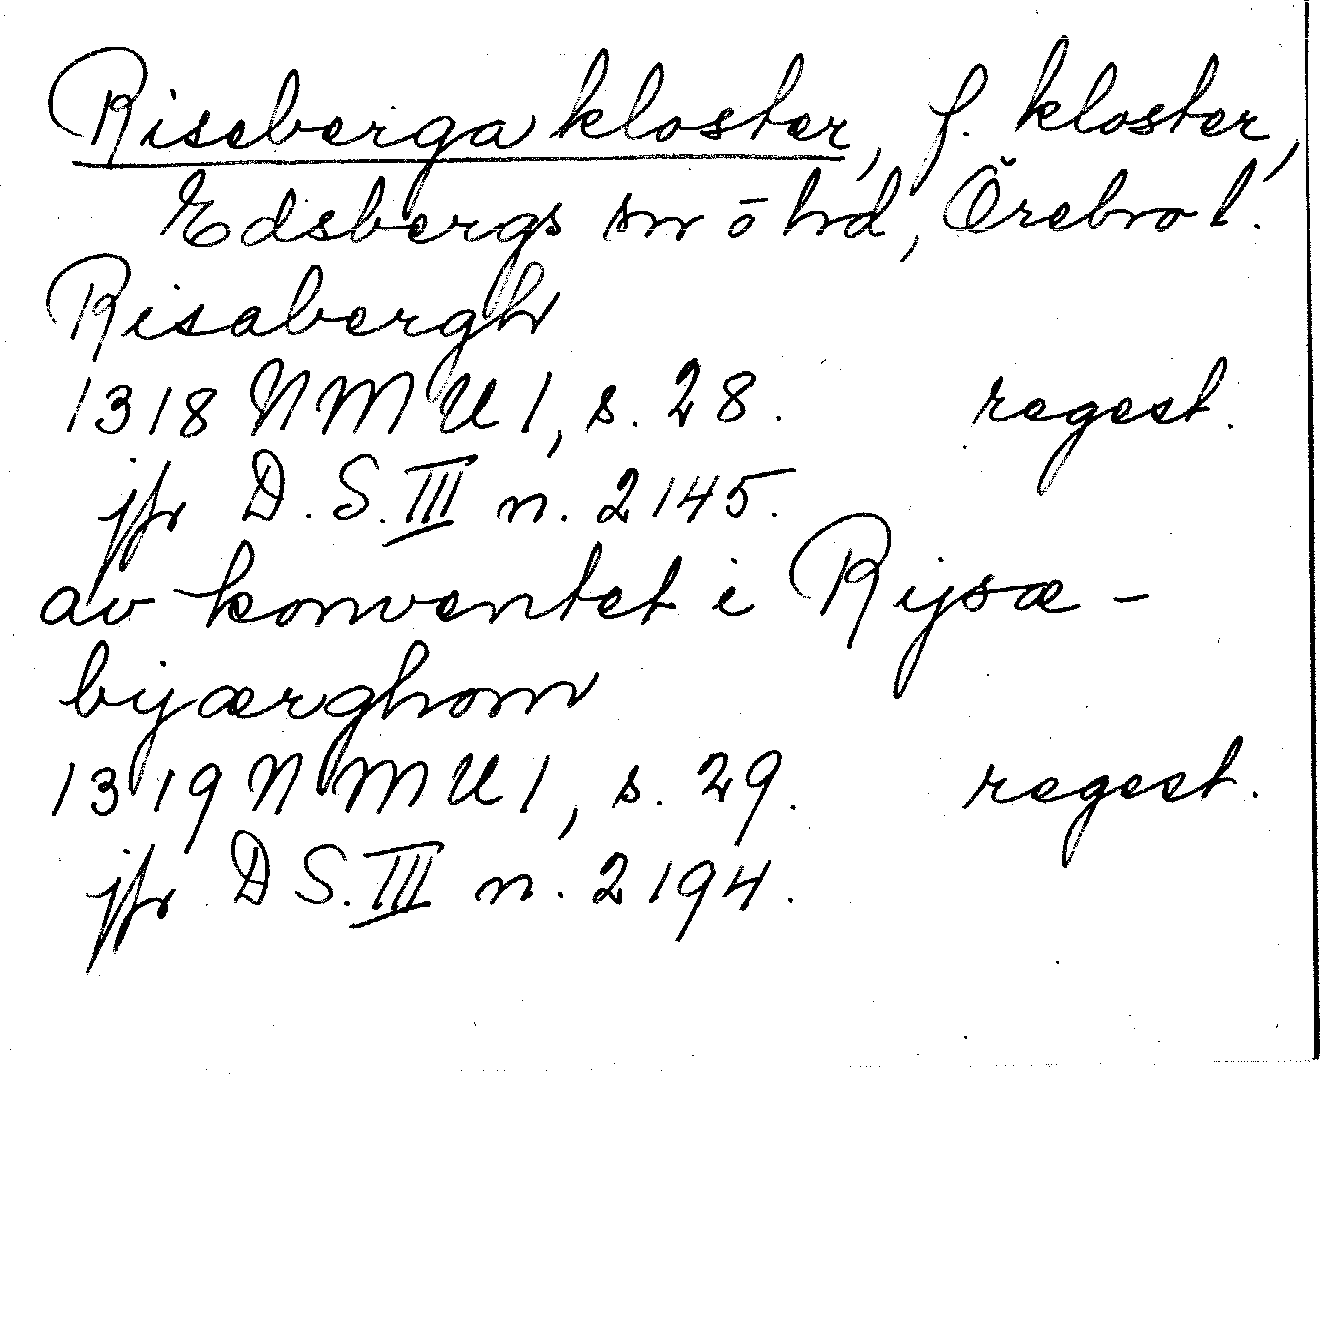 Riseberga kloster, f. kloster,
Edsbergs sn o hd, Örebro l.
Risabergh
1318 NMU 1, s. 28. regest.
jfr D. S. III n. 2145.
av konventet i Rijsæ-
bijærghom
1319 NMU 1, s. 29. regest.
jfr D S. III n. 2194.